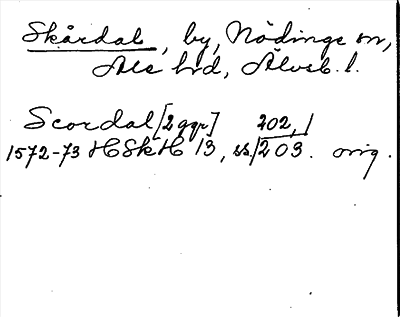 Skårdal, by, Nödinge sn,
Ale hd, Älvsb. l.
Scordal [2 ggr] 202, |
1572-73 HSkH 13, ss. | 203. orig.